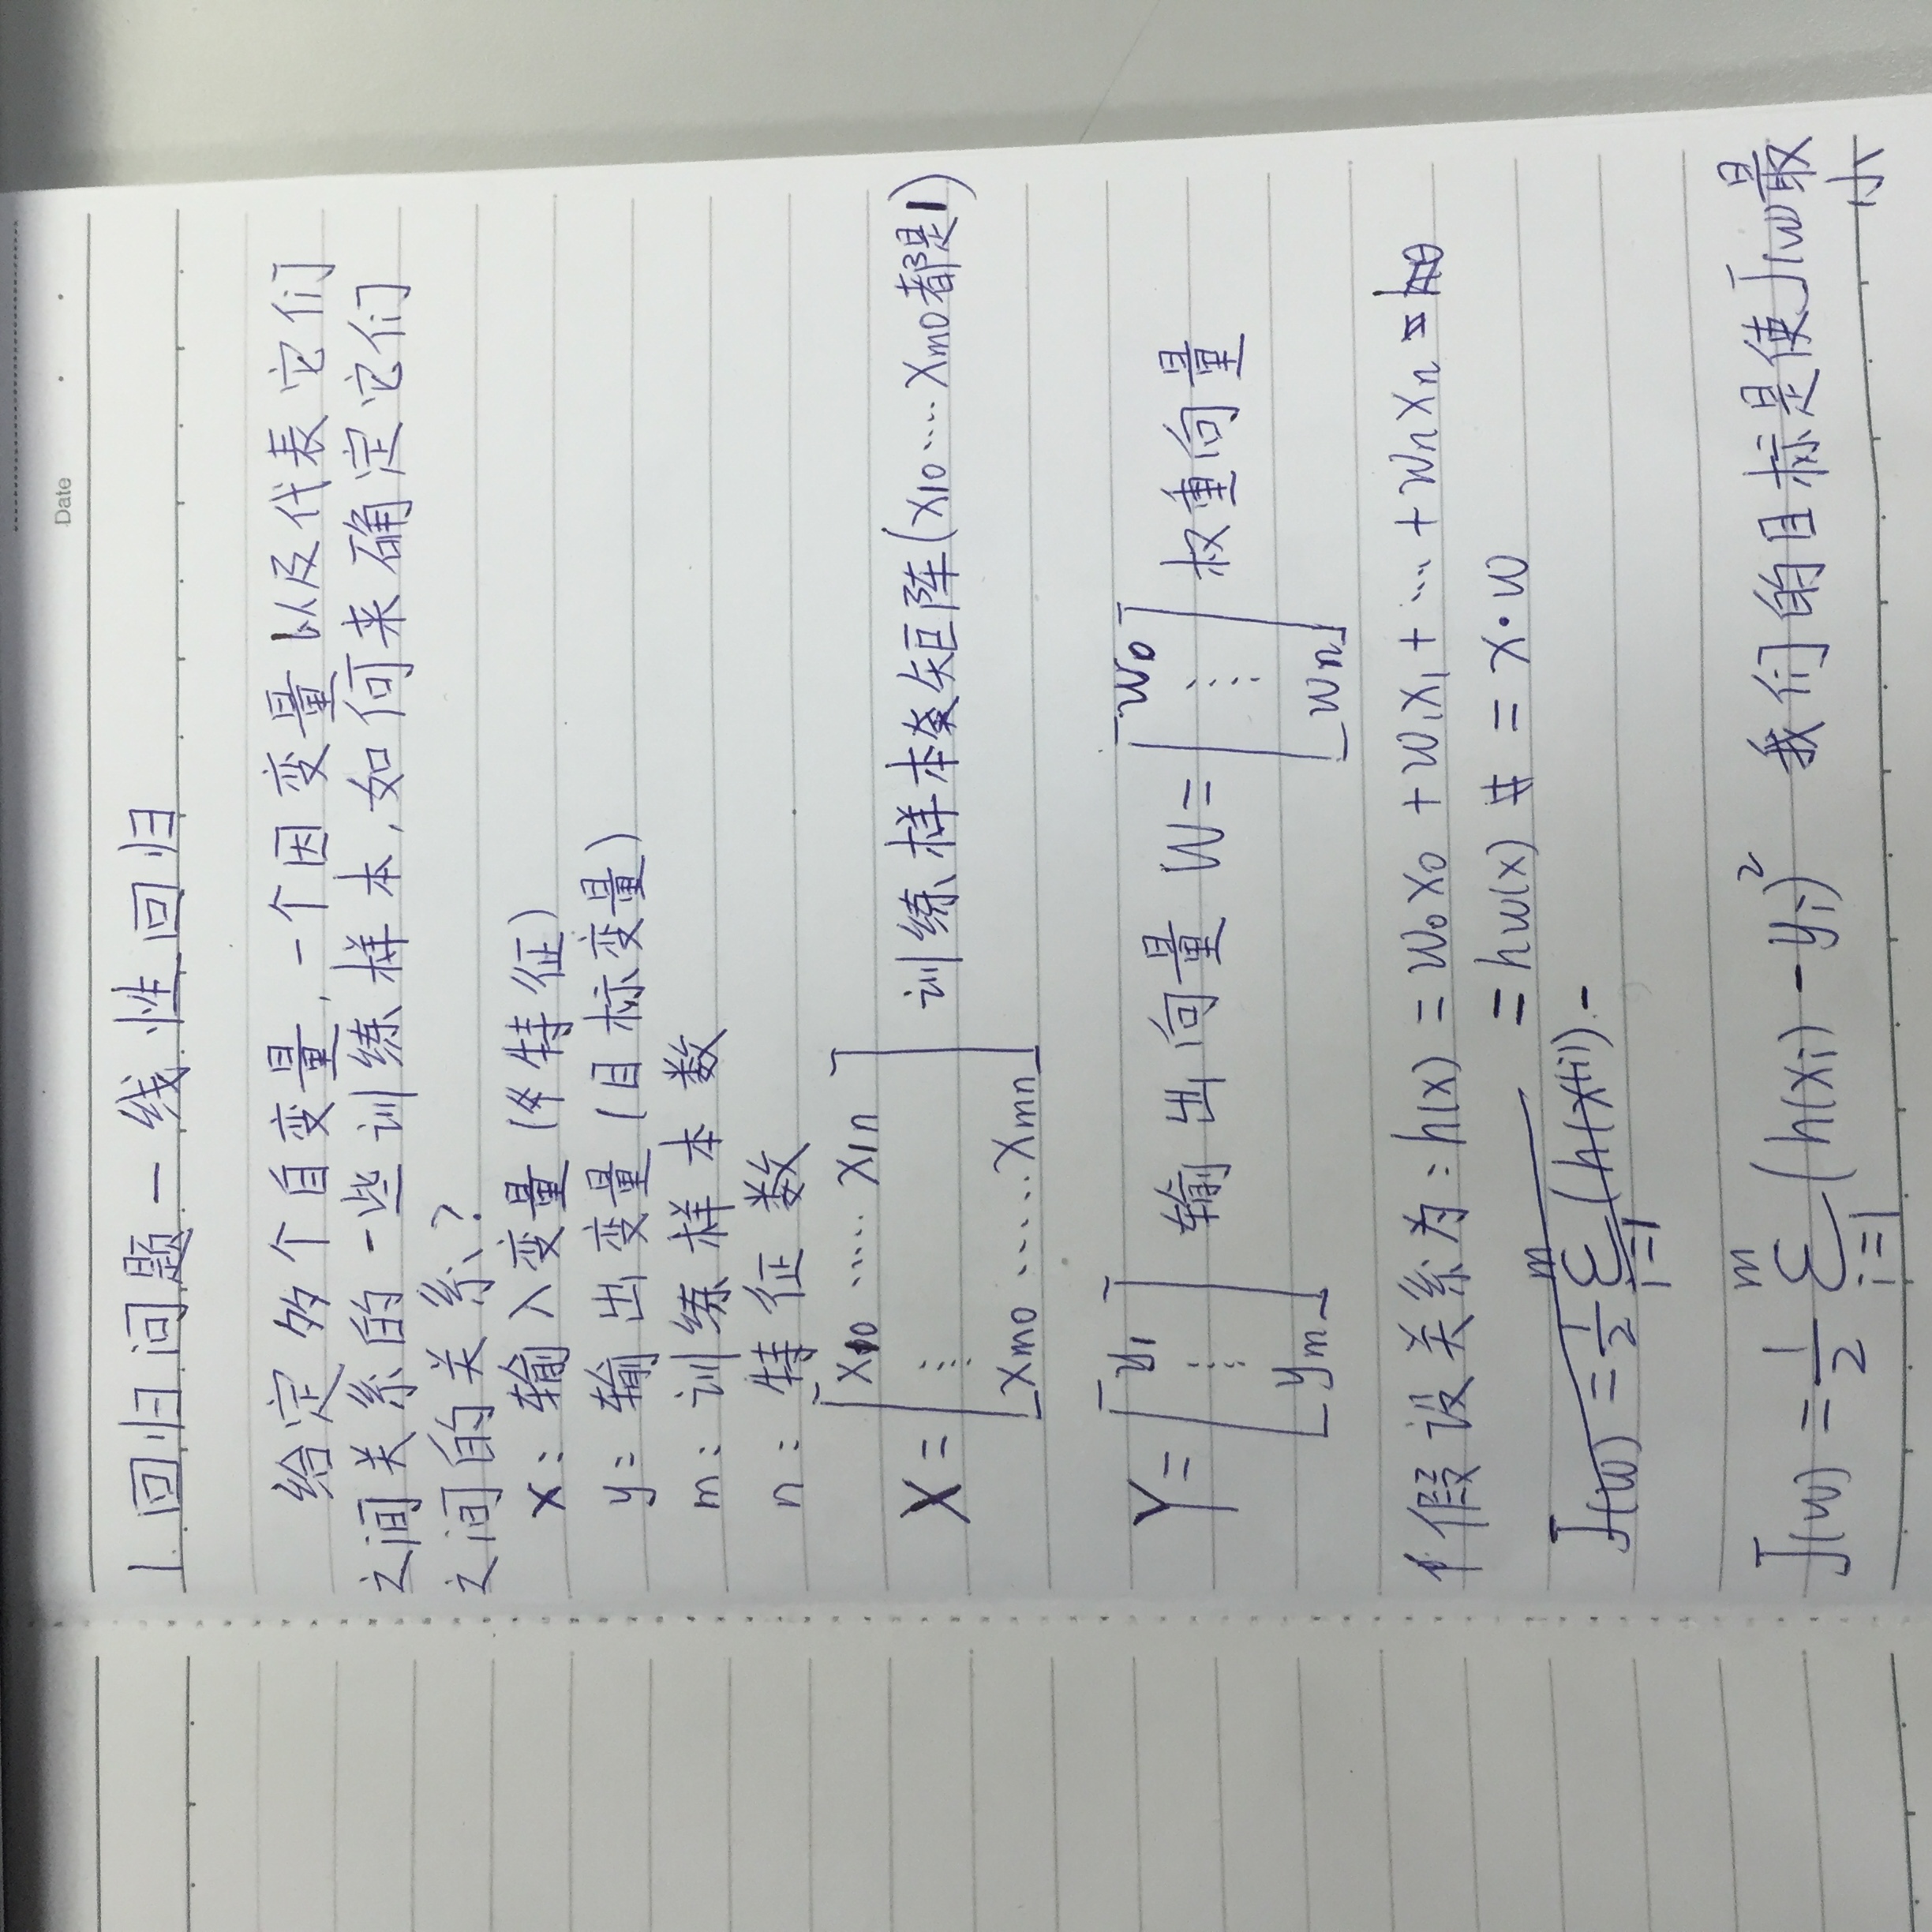 Date
1.回归问题－线性回归
给定多个自变量,一个因变量以及代表它们
之间关系的一些训练样本,如何来确定它们
之间的关系?
x: 输入变量(特征)
y: 输出变量(目标变量)
m: 训练样本数
n: 特征数
X = [x10 ..... x1n ⋮ xm0 ..... xmn] 训练样本矩阵(x10 .... xm0都是1)
Y = [y1 ⋮ ym] 输出向量 W = [w0 ⋮ wn] 权重向量
假设关系为: h(x) = w0x0 + w1x1 + ... + wnxn
= hw(x) = X·W
J(w) = 1/2 Σ i=1 m (h(x(i)) -
J(w) = 1/2 Σ i=1 m (h(xi) - yi)² 我们的目标是使J(w)最
小